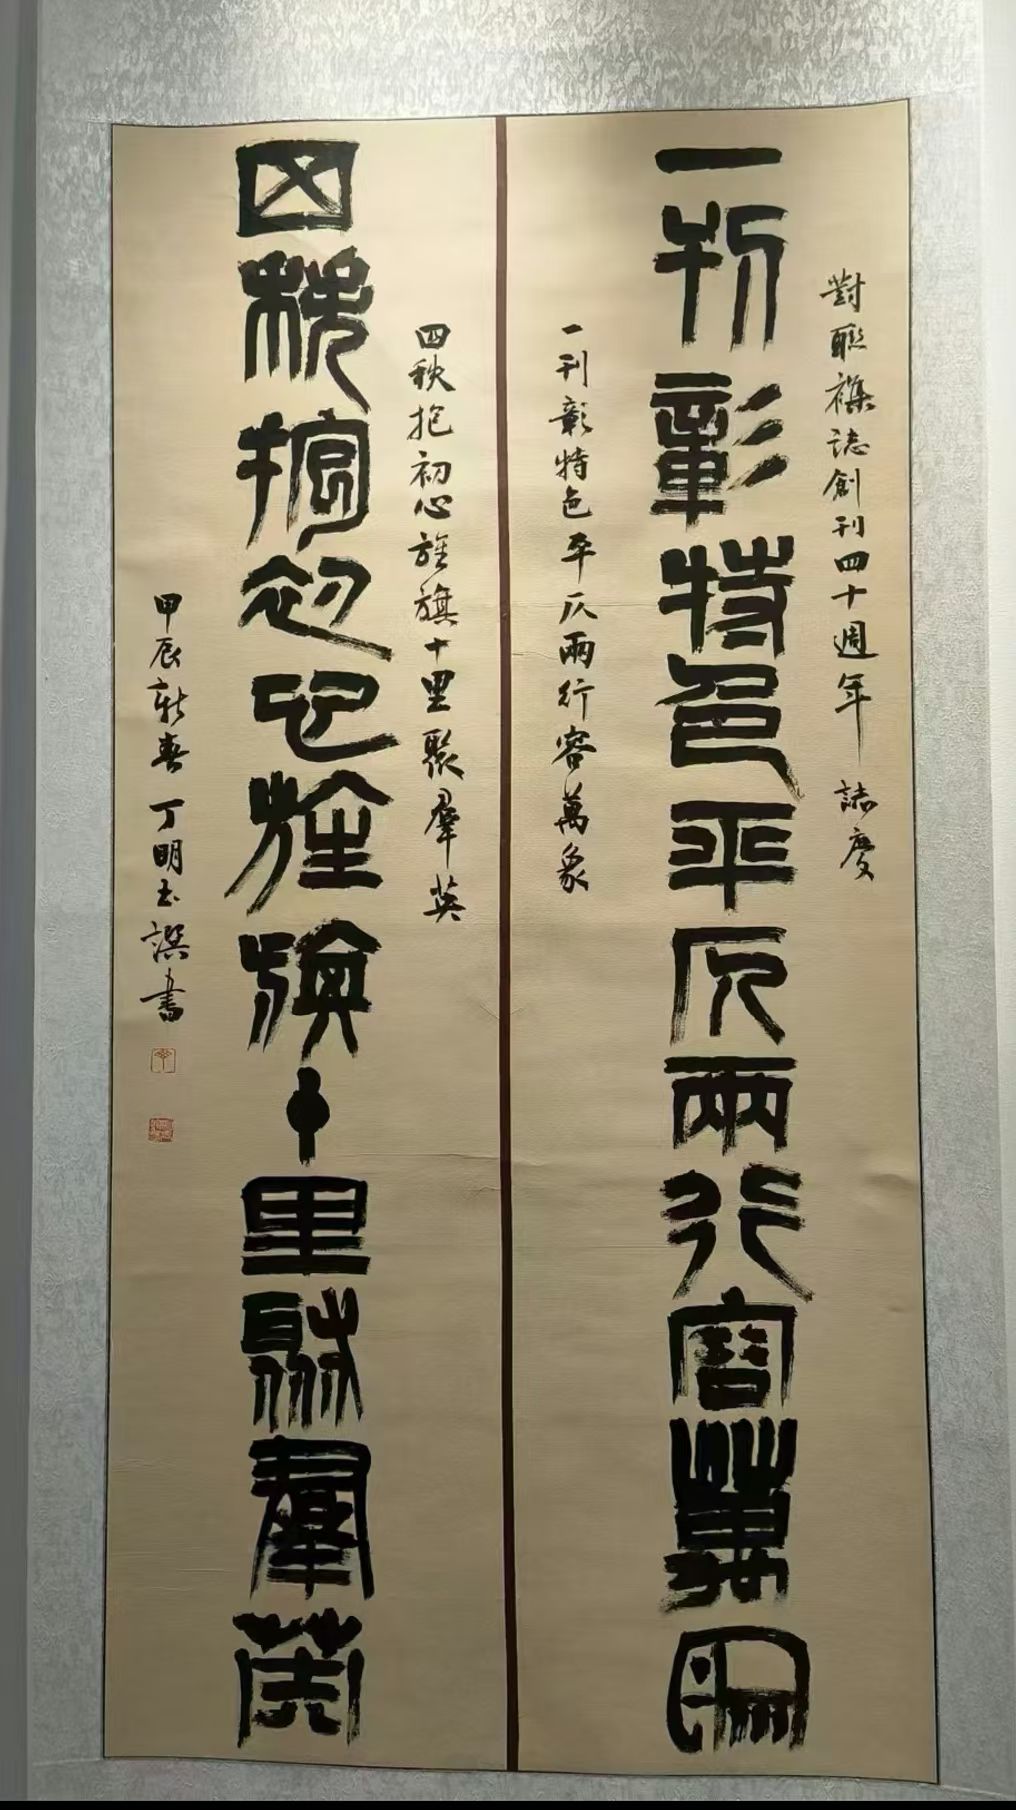 對聯襍誌創刊四十週年誌慶
一刊彰特色平仄兩行容萬象
一刊彰特色平仄兩行容萬象
四秩抱初心旌旗十里聚羣英
四秩抱初心旌旗十里聚羣英
甲辰新春丁明玉譔書